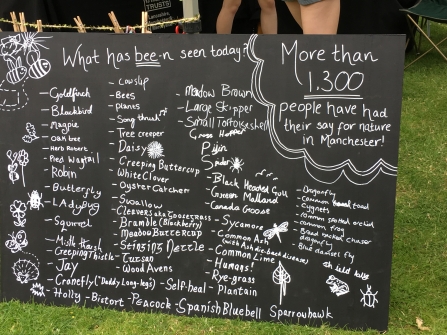 TRUSTS
What has bee-n seen today?
- Goldfinch
- Blackbird
- Magpie
- Oak tree
Herb Robert
- Pied Wagtail
- Robin
- Butterfly
- LAdyBug
- Squirrel
- Mistle thrush
- Creeping Thistle
- Jay
- Cranefly ("Daddy Long-legs)
- Holly
- Cowslip
- Bees
- plants
- Song thrush
- Tree creeper
- Daisy
- Creeping Buttercup
- White Clover
- Oyster Catcher
- Swallow
- Cleavers aka Goosegrass
- Bramble (Blackberry)
- Meadow Buttercup
- Stinging Nettle
- Tutsan
- Wood Avens
- Self-heal
- Bistort
- Peacock
- Spanish Bluebell
- Sparrowhawk
- Meadow Brown
- Large Skipper
- Small Tortoiseshell
- Grass Hopper
- Spider
- Black Headed Gull
- Green Mallard
- Canada Goose
- Sycamore
- Common Ash
(with Ash die-back disease)
- Common Lime
- Humans!
- Rye-grass
- Plantain
- Dragonfly
- Cygnets
- common spotted orchid
- common frog
- Broad bodied chaser
dragonfly
- Blue damsel fly
More than
1,300
people have had
their say for nature
in Manchester!